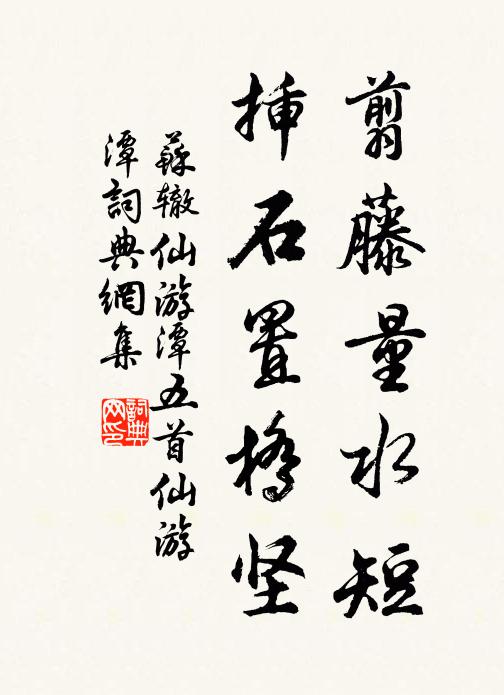 翦藤量水短
插石置橋坚
蘇辙仙游潭五首仙游
潭詞典網集
詞典网印